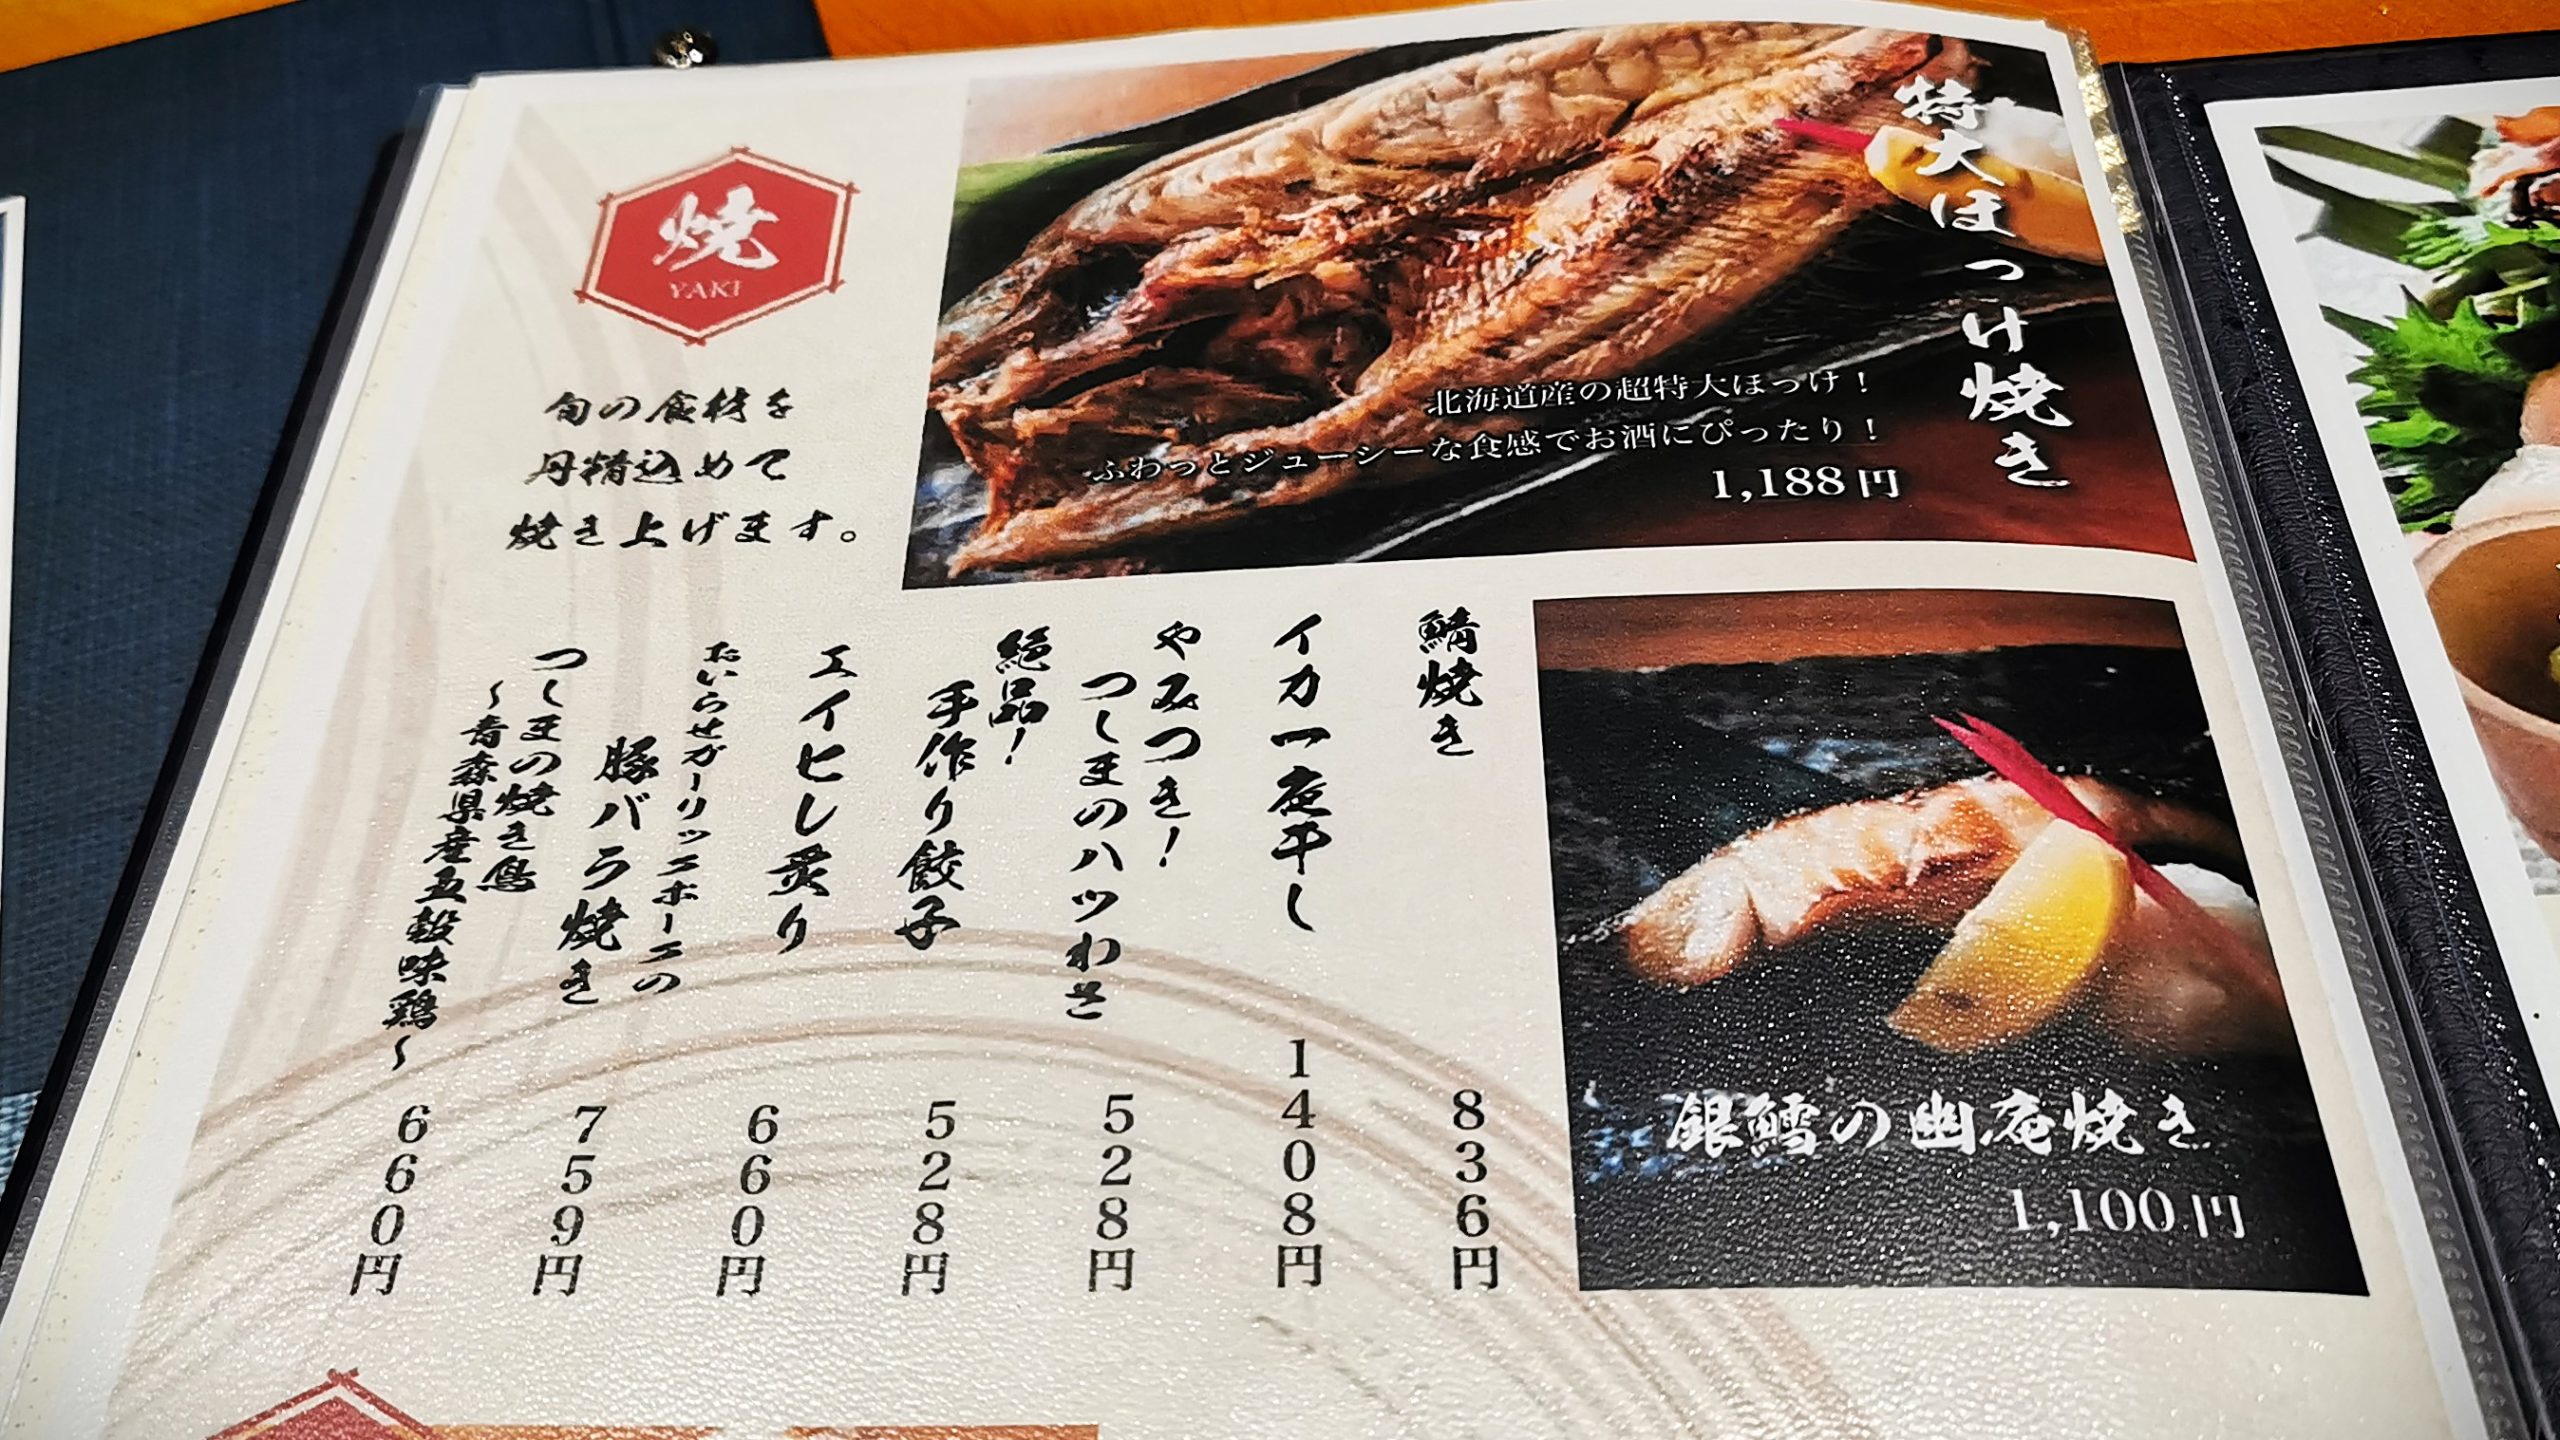 焼
YAKI
旬の食材を
丹精込めて
焼き上げます。
特大ほっけ焼き
北海道産の超特大ほっけ！
ふわっとジューシーな食感でお酒にぴったり！
1,188円
銀鱈の幽庵焼き
1,100円
鯖焼き 836円
イカ一夜干し 1408円
やみつき！
つしまのハツわさ 528円
絶品！
手作り餃子 528円
エイヒレ炙り 660円
おいらせガーリックポークの
豚バラ焼き 759円
つしまの焼き鳥
～青森県産五穀味鶏～ 660円